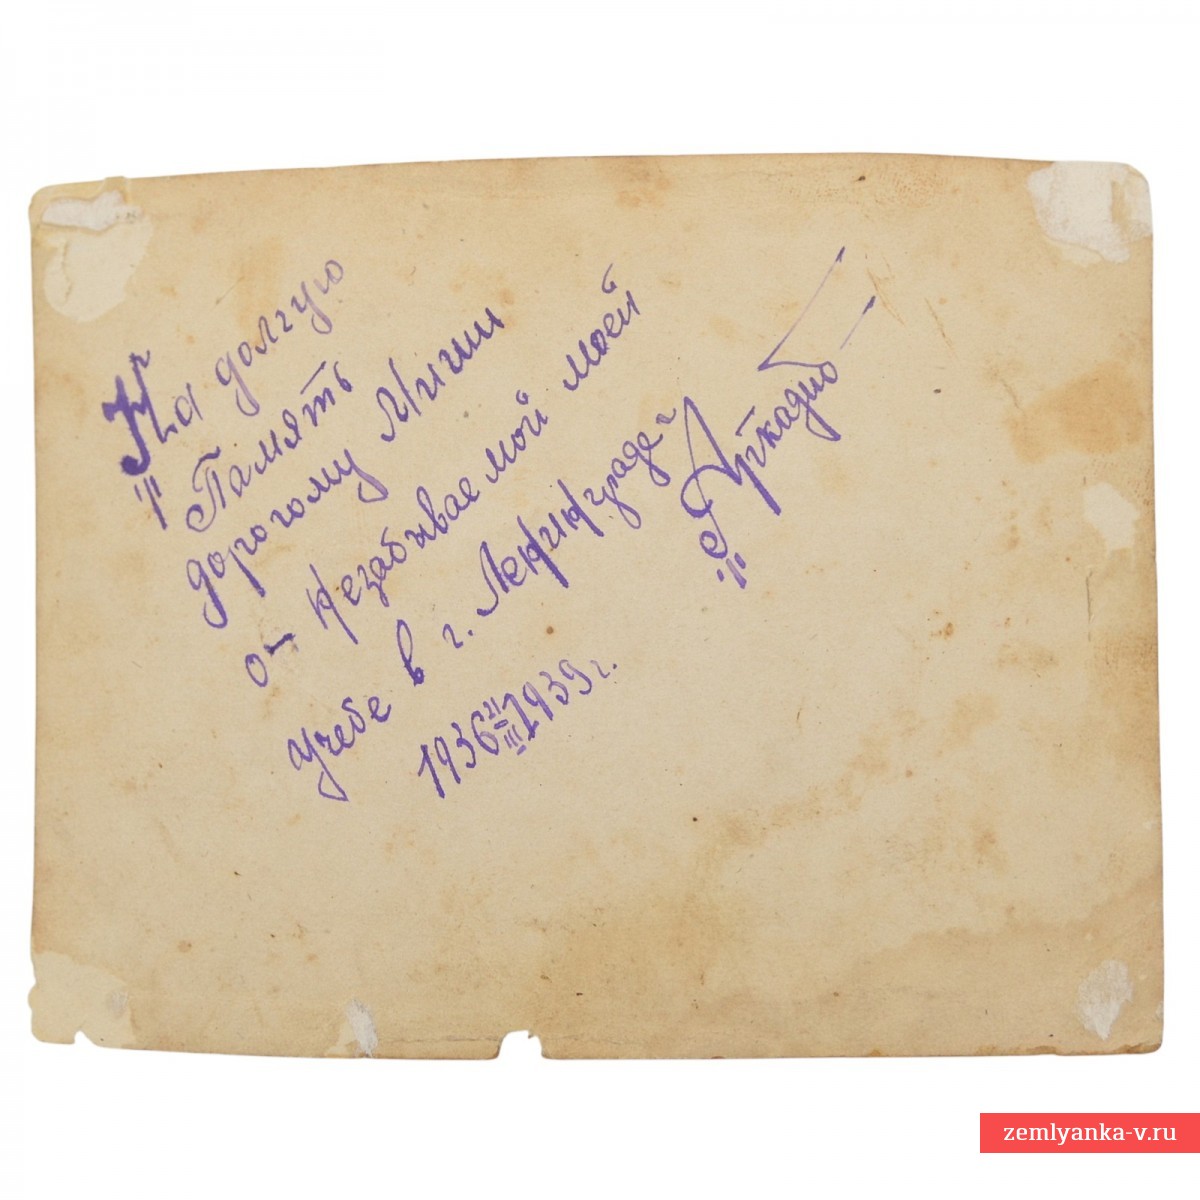 На долгую
"Память
дорогому Миши
о- незабываемой моей
учебе в г. Ленинграде"
1936 21/III 1939 г.
zemlyanka-v.ru